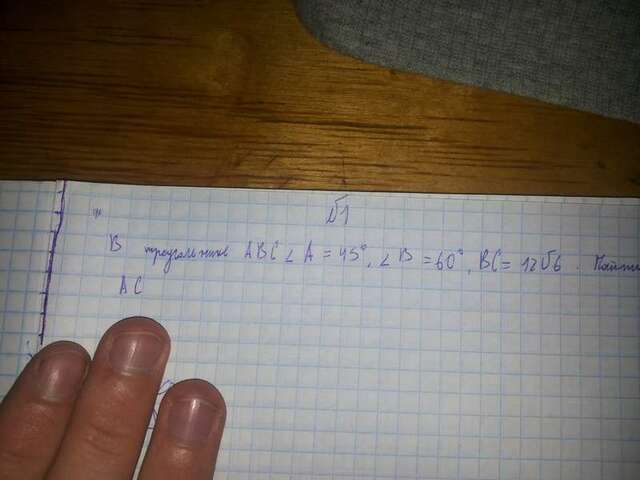 №1
В треугольнике ABC ∠A = 45°, ∠B = 60°, BC = 12√6. Найти
AC